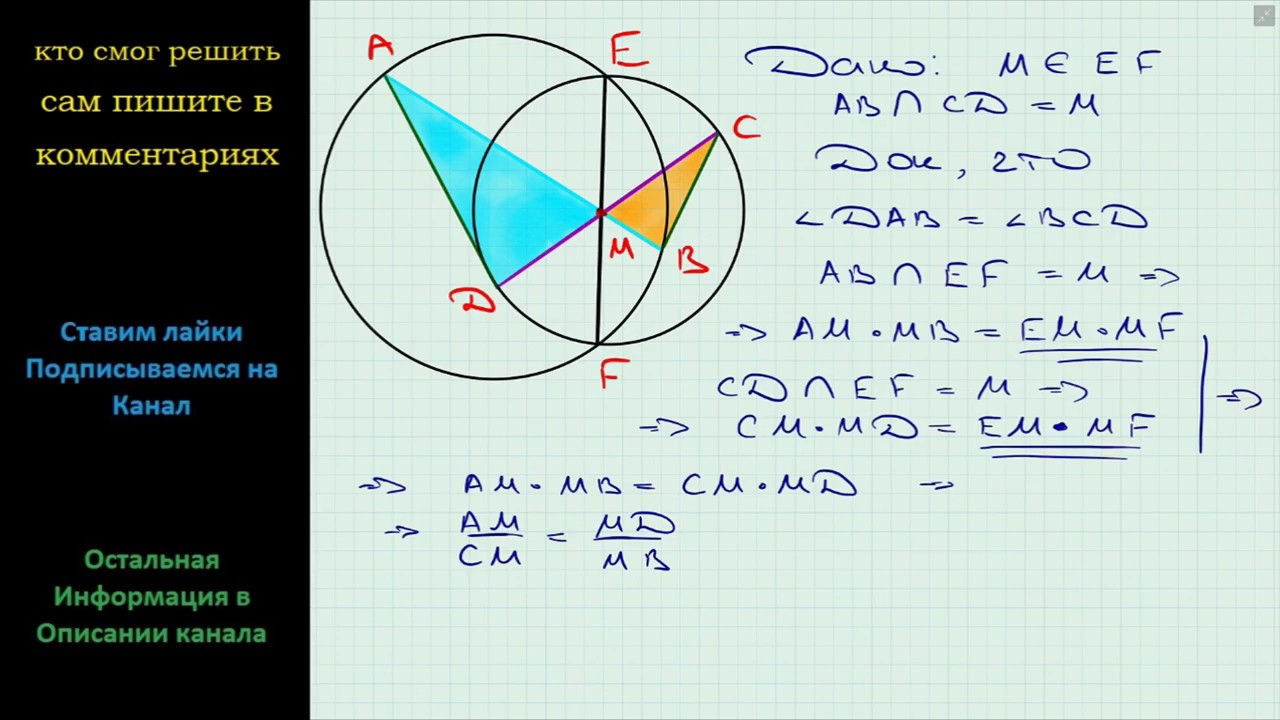 кто смог решить
сам пишите в
комментариях
Ставим лайки
Подписываемся на
Канал
Остальная
Информация в
Описании канала
A
E
C
M
B
D
F
Дано: M ∈ EF
AB ∩ CD = M
Док, что
∠DAB = ∠BCD
AB ∩ EF = M ⇒
⇒ AM · MB = EM · MF
CD ∩ EF = M ⇒
⇒ CM · MD = EM · MF
⇒
⇒ AM · MB = CM · MD ⇒
⇒ AM/CM = MD/MB